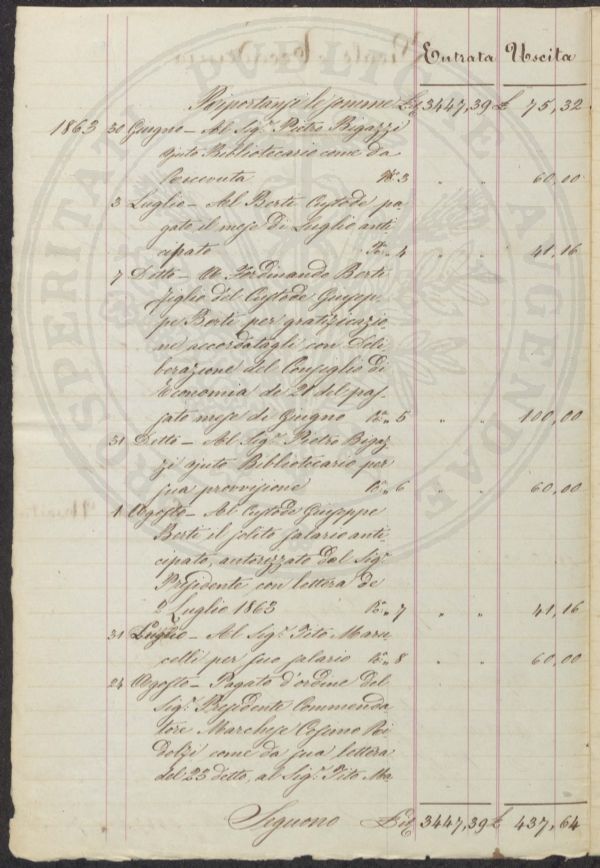 Entrata Uscita
Riportansi le somme £ 3447,39 £ 75,32
1863 30 Giugno - Al Sig.r Pietro Bigazzi
ajuto Bibliotecario come da
Ricevuta N.° 3 " " 60,00
3 Luglio - Al Berti Custode pa
gato il mese di Luglio anti
cipato 4 " " 41,16
7 Detto - A Ferdinando Berti
figlio del Custode Giusep
pe Berti per gratificazio
ne accordatagli con Deli
berazione del Consiglio di
Economia de' 21 del pas
sato mese di Giugno 5 " " 100,00
31 Detto - Al Sig.r Pietro Bigaz
zi ajuto Bibliotecario per
sua provvisione 6 " " 60,00
1 Agosto - Al Custode Giuseppe
Berti il solito salario anti
cipato, autorizzato dal Sig.r
Presidente con lettera de
2 Luglio 1863 7 " " 41,16
31 Luglio - Al Sig.r Tito Maru
celli per suo salario 8 " " 60,00
24 Agosto - Pagato d'ordine del
Sig.r Presidente Commenda
tore Marchese Cosimo Ri
dolfi come da sua lettera
del 23 detto, al Sig.r Tito Ma
Seguono 3447,39 £ 437,64
PROSPERITATI PUBLICAE AUGENDAE